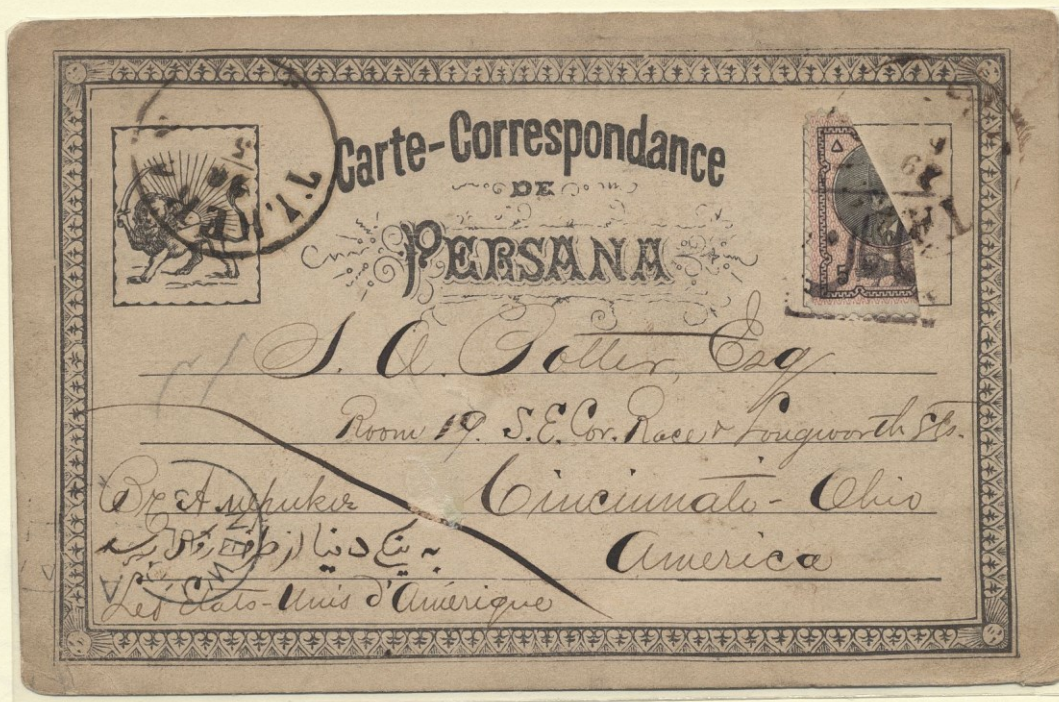 Carte-Correspondance
DE
PERSANA
5
S. A. Potter, Esq.
Room 19. S.E. Cor. Race & Longworth Sts.
Cincinnati - Ohio
America
Въ Америки
به ینگی دنیا از طرف
Les États-Unis d'Amérique